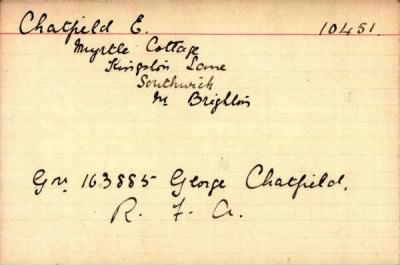 Chatfield E. 10451.
Myrtle Cottage
Kingston Lane
Southwick
Nr Brighton
Gnr 163885 George Chatfield.
R. F. A.